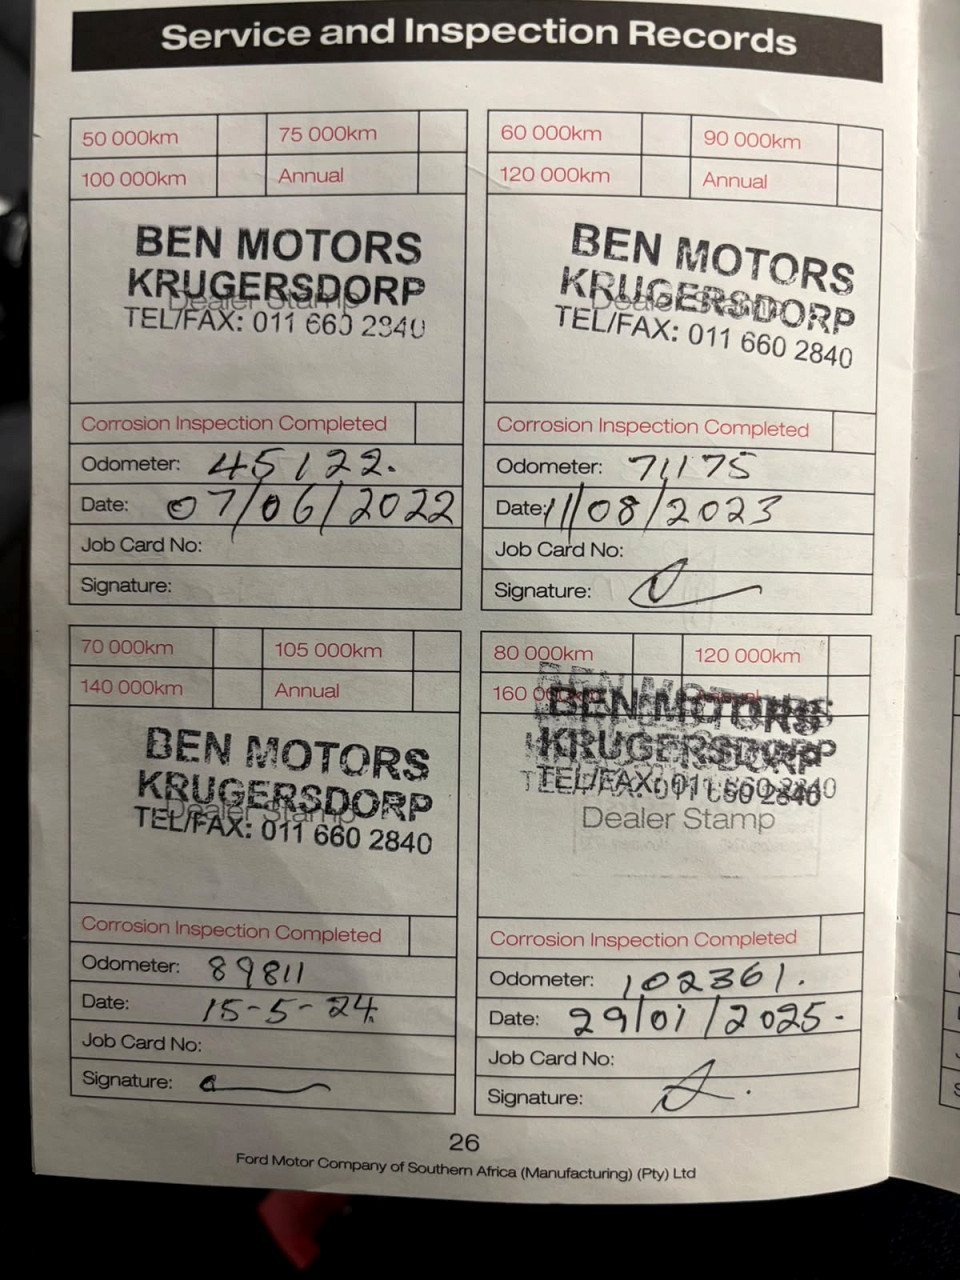 Service and Inspection Records
50 000km 75 000km
100 000km Annual
BEN MOTORS
KRUGERSDORP
Dealer Stamp
TEL/FAX: 011 660 2840
Corrosion Inspection Completed
Odometer: 45122.
Date: 07/06/2022
Job Card No:
Signature:
60 000km 90 000km
120 000km Annual
BEN MOTORS
KRUGERSDORP
Dealer Stamp
TEL/FAX: 011 660 2840
Corrosion Inspection Completed
Odometer: 71175
Date: 11/08/2023
Job Card No:
Signature:
70 000km 105 000km
140 000km Annual
BEN MOTORS
KRUGERSDORP
Dealer Stamp
TEL/FAX: 011 660 2840
Corrosion Inspection Completed
Odometer: 89811
Date: 15-5-24
Job Card No:
Signature:
80 000km 120 000km
160 000km Annual
BEN MOTORS
KRUGERSDORP
TEL/FAX: 011 660 2840
Dealer Stamp
Corrosion Inspection Completed
Odometer: 102361.
Date: 29/01/2025-
Job Card No:
Signature:
26
Ford Motor Company of Southern Africa (Manufacturing) (Pty) Ltd